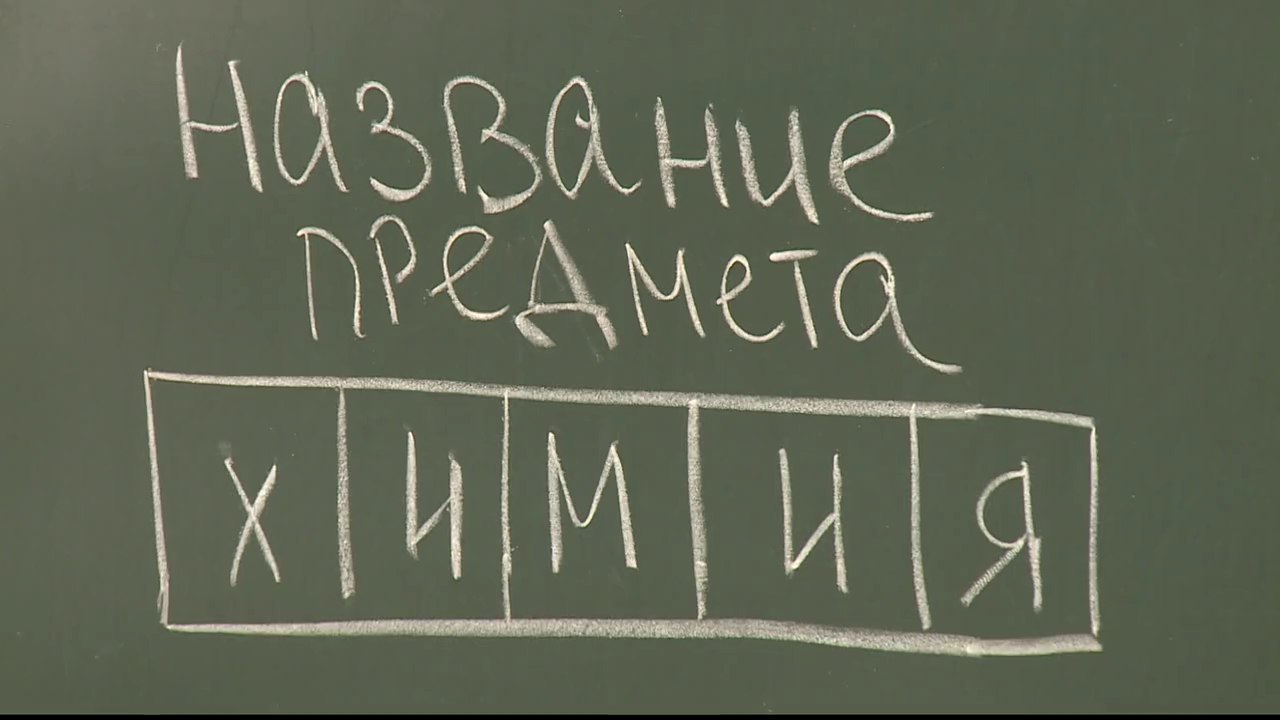 Название
предмета
ХИМИЯ